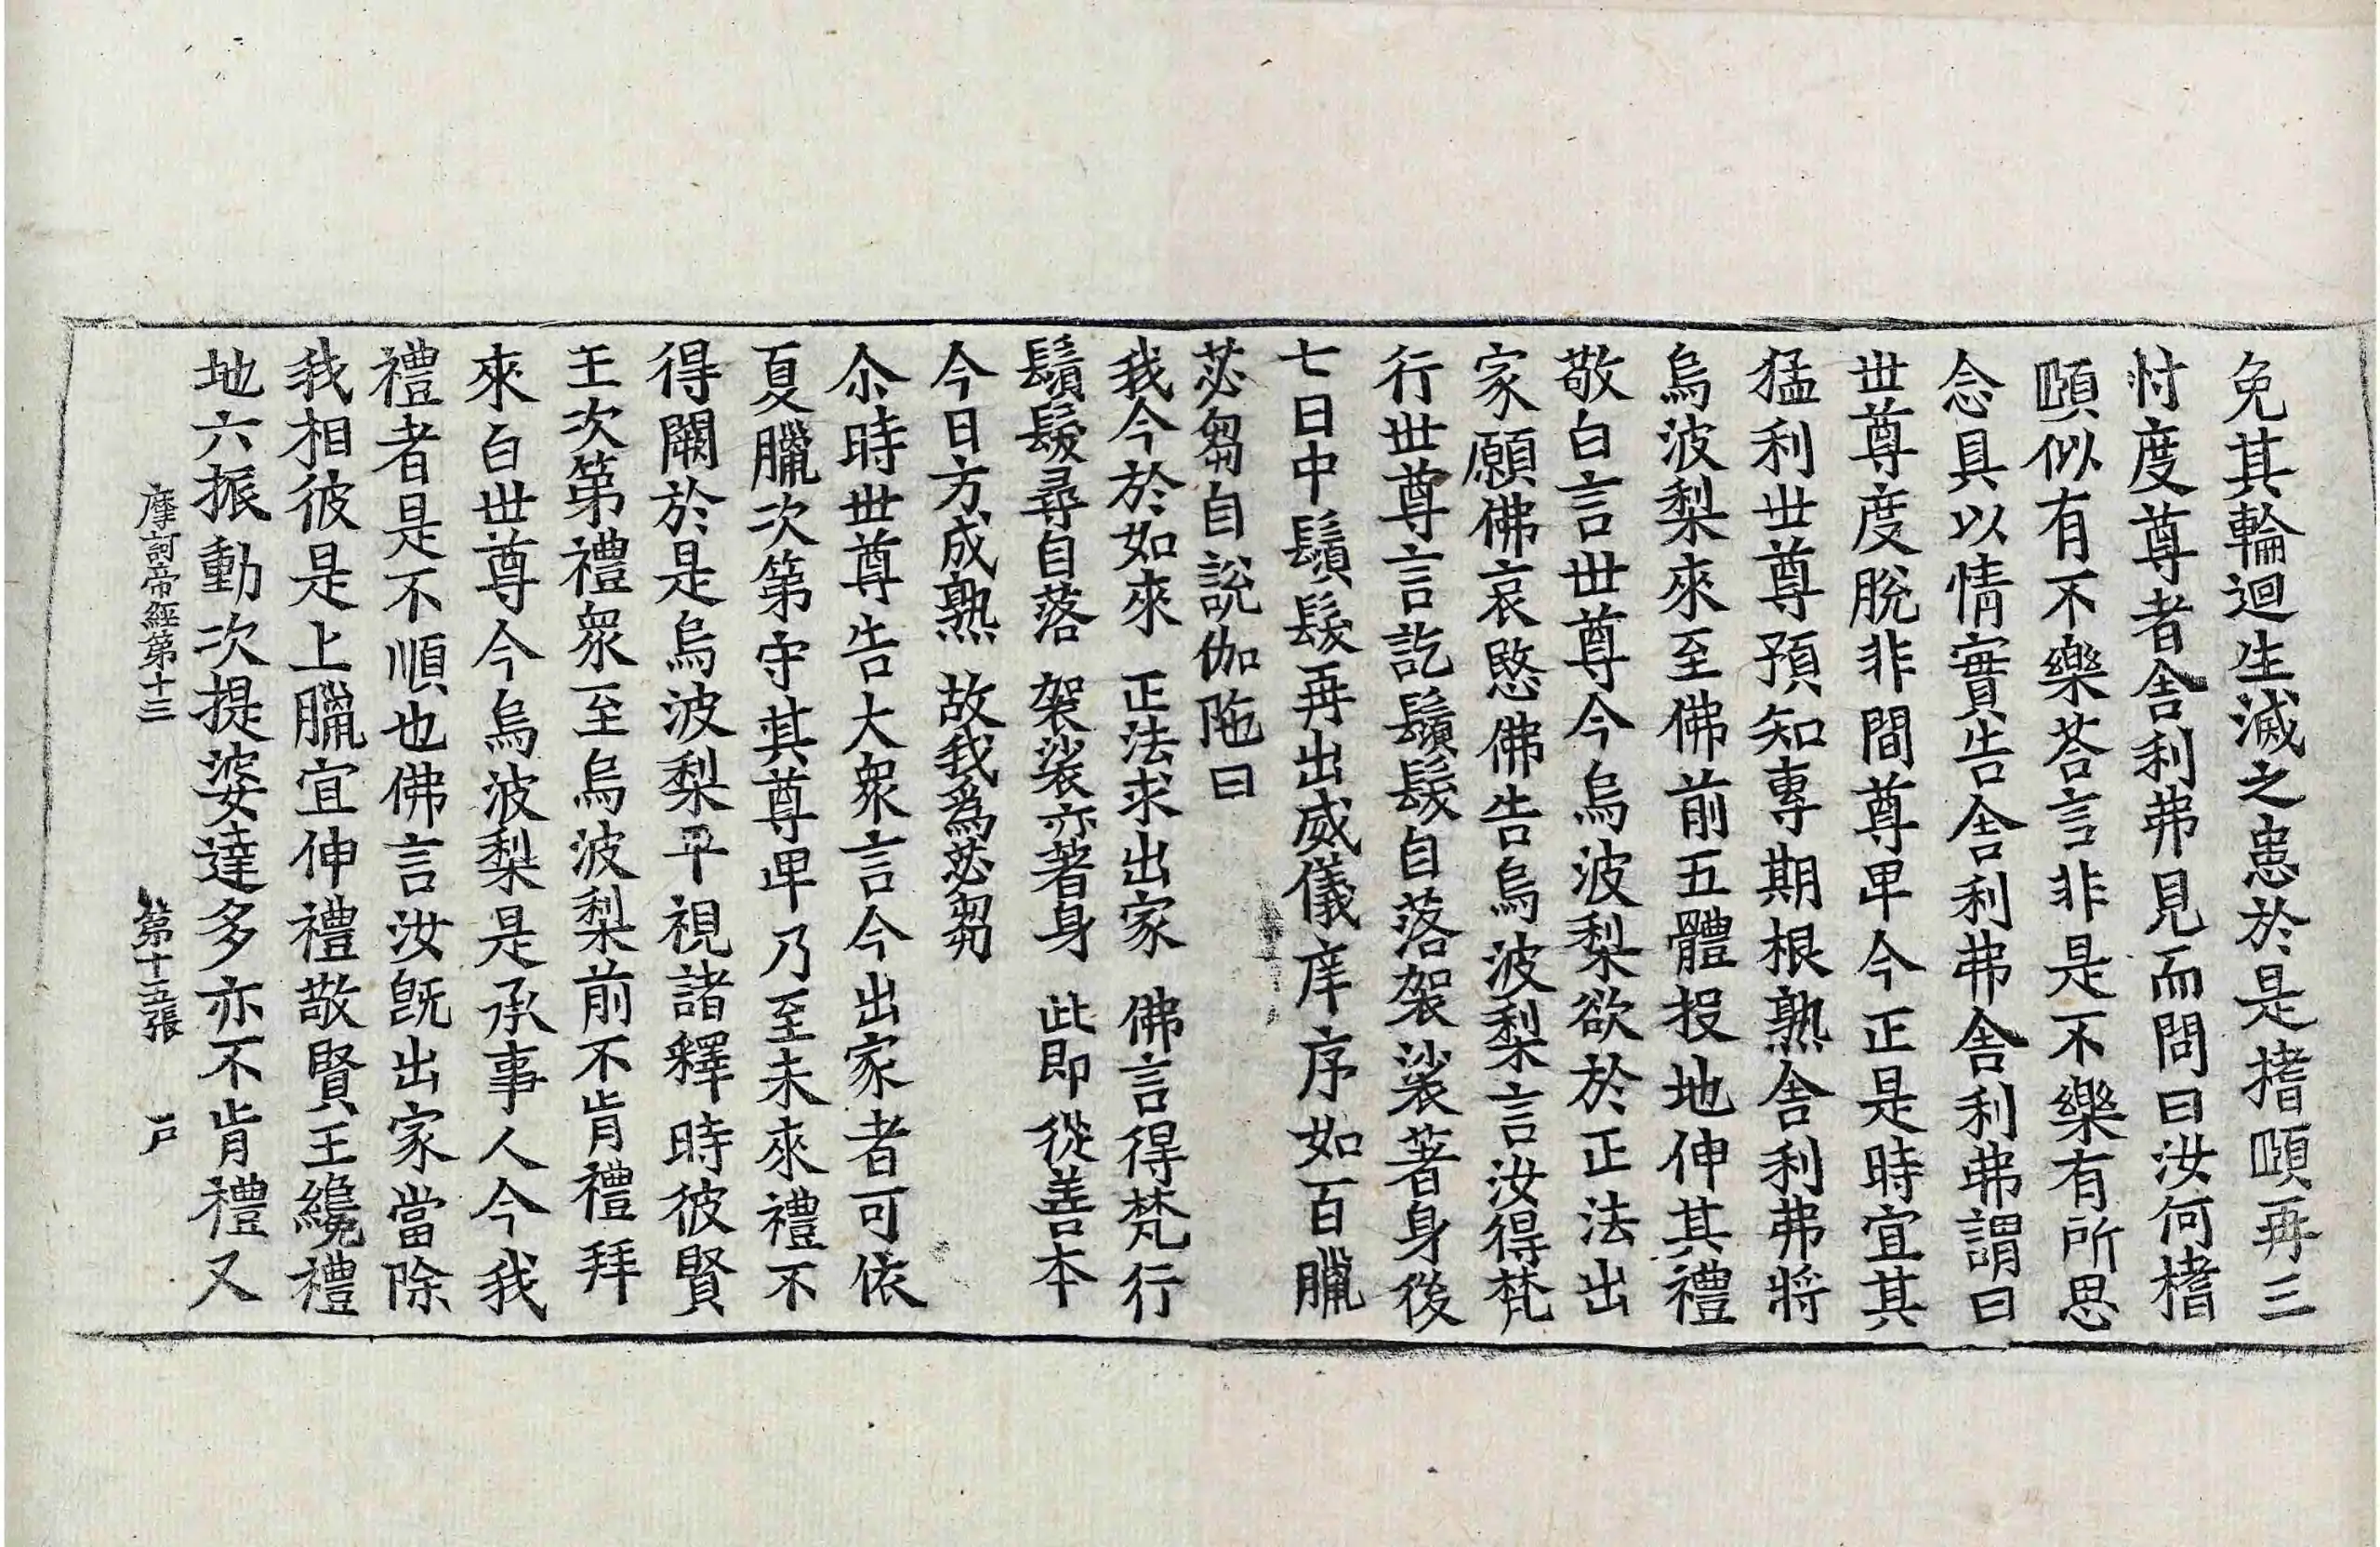 免其輪迴生滅之患於是搘頥再三
忖度尊者舎利弗見而問曰汝何搘
頥似有不樂荅言非是不樂有所思
念具以情實告舎利弗舎利弗謂曰
丗尊度脫非間尊甲今正是時宜其
猛利丗尊預知專期根熟舎利弗將
烏波梨來至佛前五體投地伸其禮
敬白言丗尊今烏波梨欲於正法出
家願佛哀愍佛告烏波梨言汝得梵
行丗尊言訖鬚髮自落袈裟著身後
七日中鬚髮再出威儀庠序如百臘
苾芻自說伽陁曰
我今於如來 正法求出家 佛言得梵行
鬚髮尋自落 袈裟亦著身 此即從善本
今日方成熟 故我爲苾芻
尒時丗尊告大衆言今出家者可依
夏臘次第守其尊甲乃至未來禮不
得闕於是烏波梨平視諸釋時彼賢
王次第禮衆至烏波梨前不肯禮拜
來白丗尊今烏波梨是承事人今我
禮者是不順也佛言汝旣出家當除
我相彼是上臘宜伸禮敬賢王纔禮
地六振動次提婆達多亦不肯禮又
摩訶帝經第十三 第十五張 戶